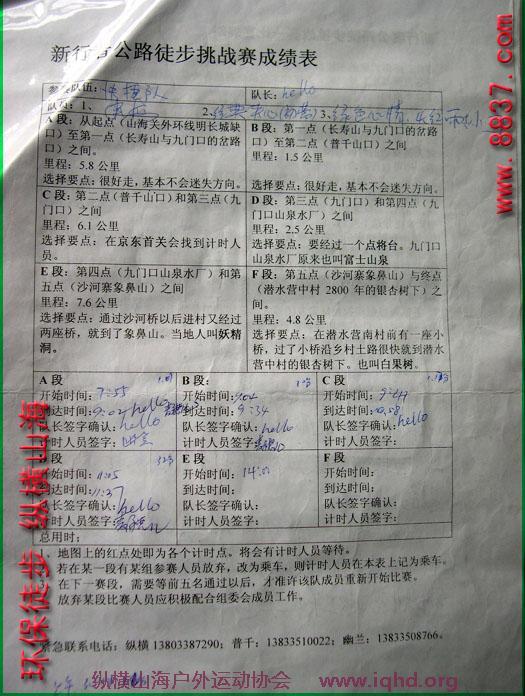 新行
公路徒步挑战赛成绩表
参赛队伍：
队长：hello
队员：1、
2、
3、绿色心情
A 段：从起点（山海关外环线明长城缺
口）至第一点（长寿山与九门口的岔路
口）之间。
里程：5.8 公里
选择要点：很好走，基本不会迷失方向。
B 段：第一点（长寿山与九门口的岔路
口）至第二点（普千山口）
里程：1.5 公里
选择要点：很好走，基本不会迷失方向。
C 段：第二点（普千山口）和第三点（九
门口）之间
里程：6.1 公里
选择要点：在京东首关会找到计时人
员。
D 段：第三点（九门口）和第四点（九
门口山泉水厂）之间
里程：2.5 公里
选择要点：要经过一个点将台。九门口
山泉水厂原来也叫富士山泉
E 段：第四点（九门口山泉水厂）和第
五点（沙河寨象鼻山）之间
里程：7.6 公里
选择要点：通过沙河桥以后进村又经过
两座桥，就到了象鼻山。当地人叫妖精
洞。
F 段：第五点（沙河寨象鼻山）与终点
（潜水营中村 2800 年的银杏树下）之
间
里程：4.8 公里
选择要点：在潜水营南村前有一座小
桥，过了小桥沿乡村土路很快就到潜水
营中村的银杏树下。也叫白果树。
A 段
开始时间：7:55
到达时间：9:02 hello
队长签字确认：hello
计时人员签字：
B 段：
开始时间：9:04
到达时间：9:34
队长签字确认：hello
计时人员签字：
C 段
开始时间：
到达时间：10:58
队长签字确认：hello
计时人员签字：
D 段
开始时间：11:05
到达时间：11:37
队长签字确认：hello
计时人员签字：
E 段
开始时间：
到达时间：
队长签字确认：
计时人员签字：
F 段
开始时间：
到达时间：
队长签字确认：
计时人员签字：
总用时：
1、地图上的红点处即为各个计时点。将会有计时人员等待。
若在某一段有某组参赛人员放弃，改为乘车，则计时人员在本表上记为乘车。
在下一赛段，需要等前五名通过以后，才准许该队成员重新开始比赛。
放弃某段比赛人员应积极配合组委会成员工作。
紧急联系电话：纵横 13803387290；普千：13833510022；幽兰：13833508766。
www.8837.com
环保徒步 纵横山海
纵横山海户外运动协会 www.iqhd.org